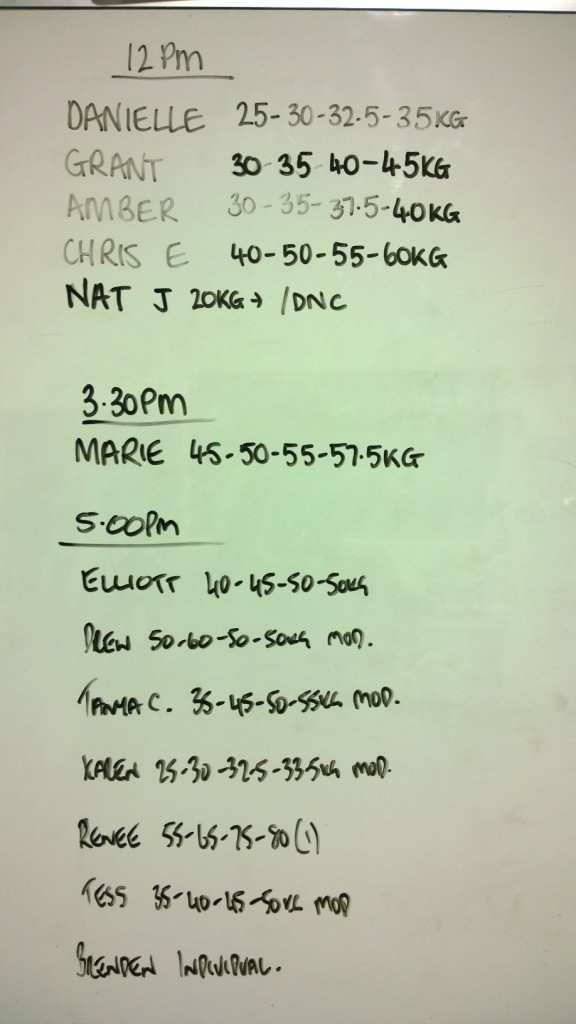 12 Pm
DANIELLE 25-30-32.5-35KG
GRANT 30-35-40-45KG
AMBER 30-35-37.5-40KG
CHRIS E 40-50-55-60KG
NAT J 20KG → /DNC
3.30Pm
MARIE 45-50-55-57.5KG
5.00Pm
ELLIOTT 40-45-50-50KG
DREW 50-60-50-50KG MOD.
C. 35-45-50-55KG MOD.
KAREN 25-30-32.5-33.5KG MOD.
RENEE 55-65-75-80(1)
TESS 35-40-45-50KG MOD
BRENDEN INDIVIDUAL.